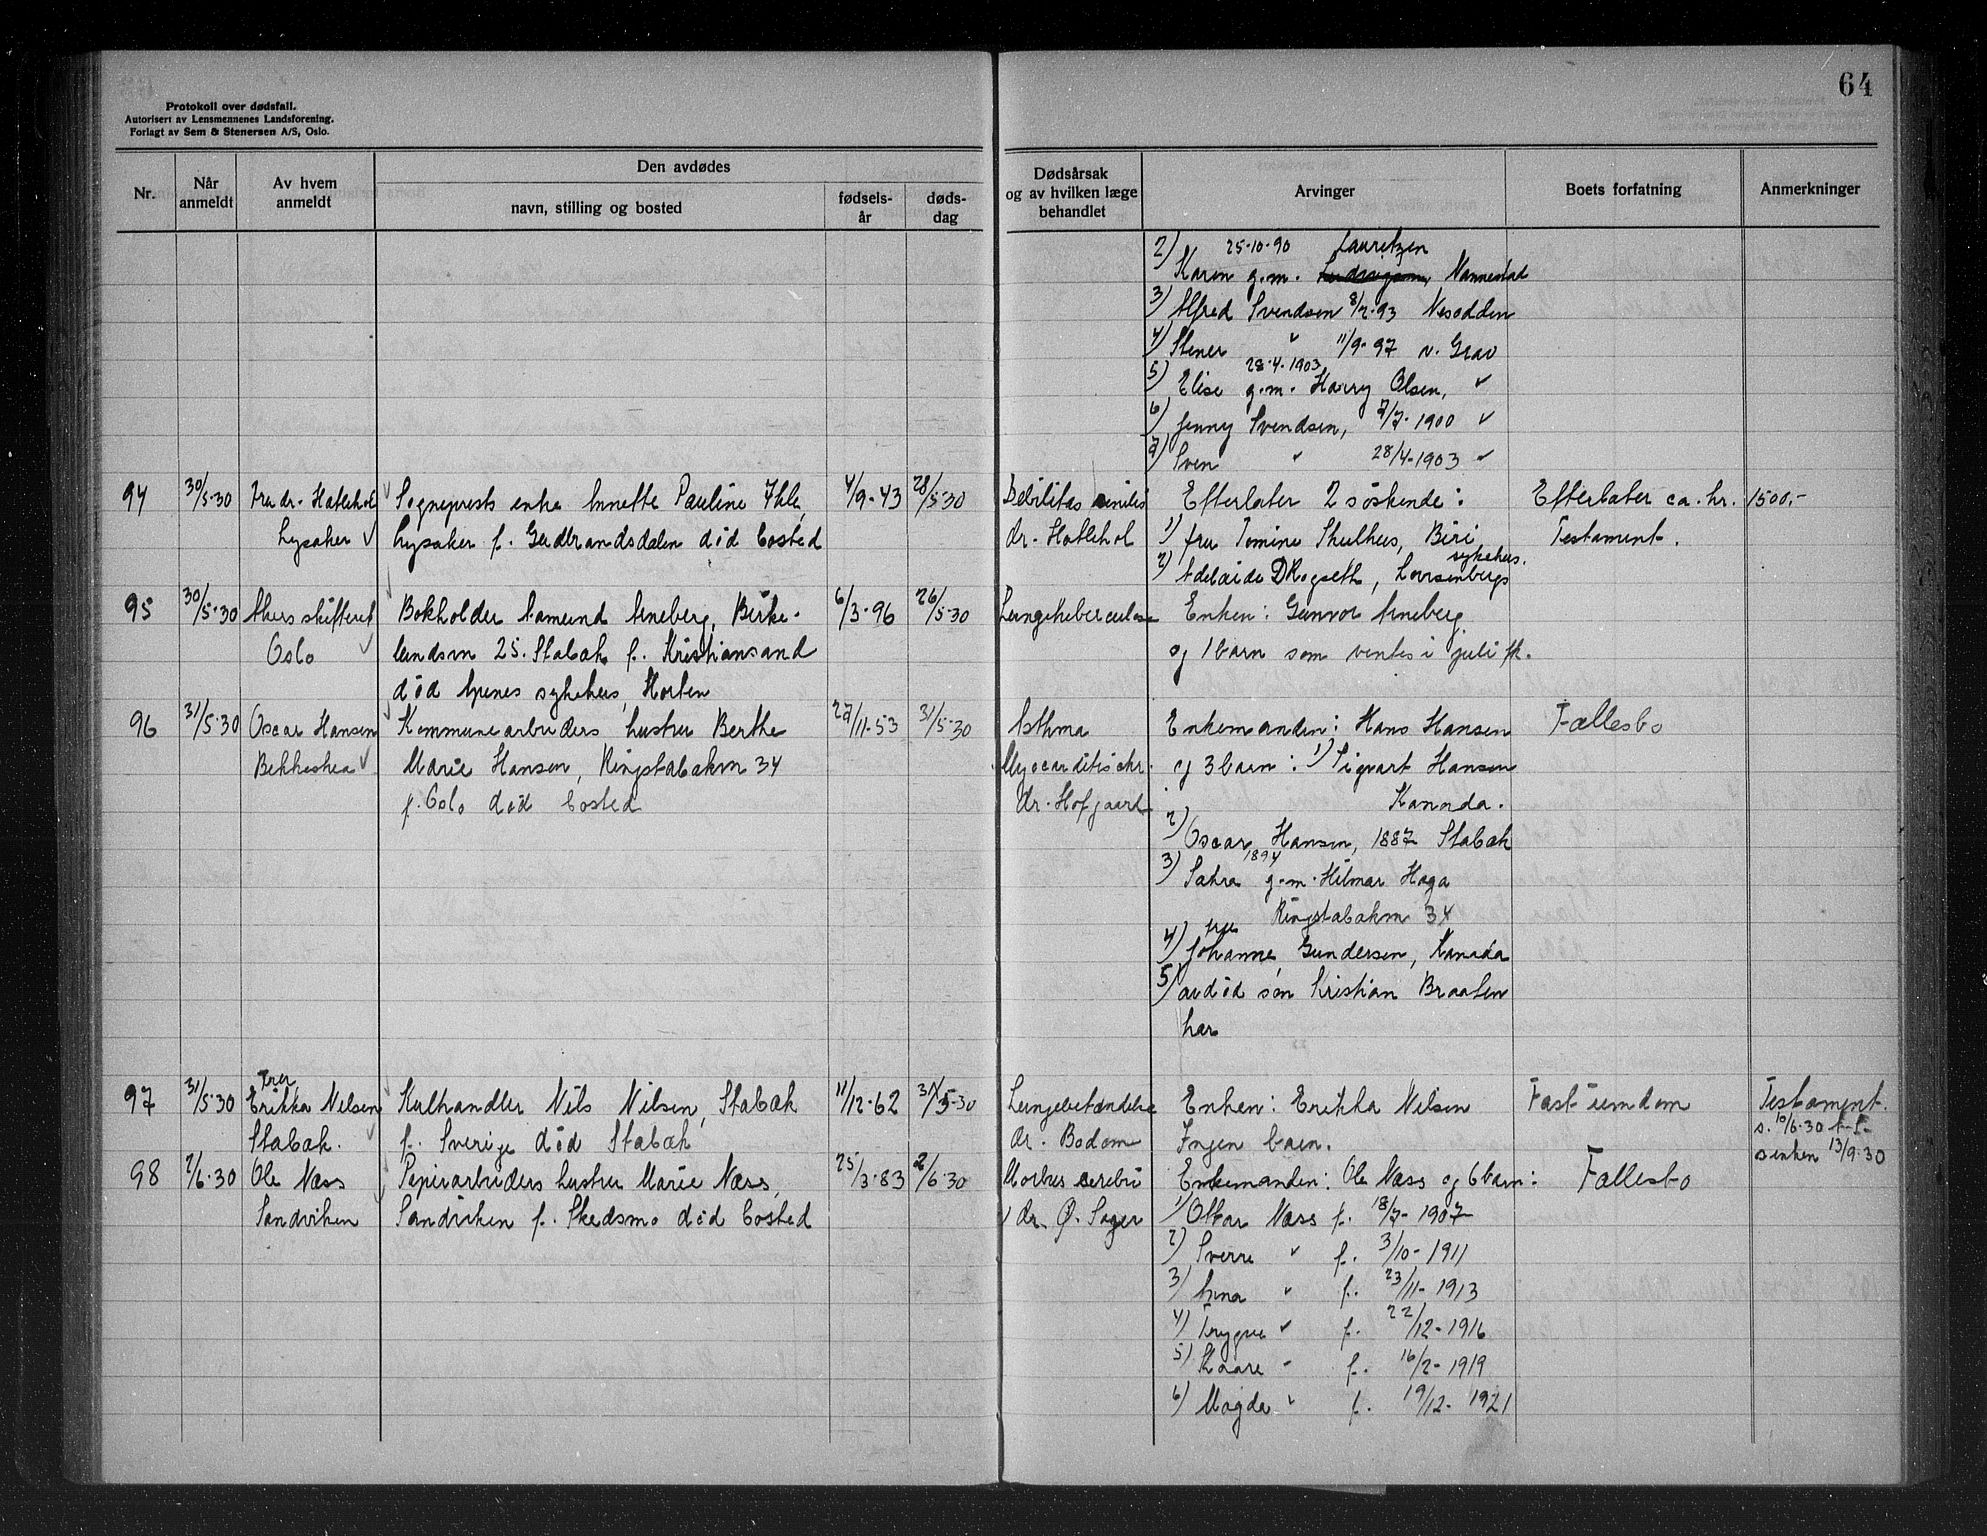 64
Protokoll over dødsfall.
Autorisert av Lensmennenes Landsforening.
Forlagt av Sem & Stenersen A/S, Oslo.
Nr.
Når anmeldt
Av hvem anmeldt
Den avdødes
navn, stilling og bosted
fødsels-år
døds-dag
Dødsårsak og av hvilken læge behandlet
Arvinger
Boets forfatning
Anmerkninger
2) 25-10-90 Lauritzen
Karen g.m. Nannestad
3) Alfred Svendsen 8/2-93 Nesodden
4) Stener " 11/9-97 v. Grav
28-4-1903
5) Elise g.m. Harry Olsen, "
6) Jenny Svendsen, 7/7-1900 "
7) Sven " 28/4-1903 "
94 30/5-30 Fru dr. Hatlehol Sogneprests enke Annette Pauline Ihle 4/9-43 28/5-30 Debilitas senilis Efterlater 2 søskende: Efterlater ca. kr. 1500,-
Lysaker Lysaker f. Gudbrandsdalen død bosted dr. Hatlehol 1) fru Tomine Skulhus, Biri Testament.
sykehus.
2) Adelaide Rogseth, Lovisenbergs
95 30/5-30 Akers skifterett Bokholder Aamund Arneberg, Birke- 6/3-96 26/5-30 Lungetuberculose Enken: Gunvor Arneberg
Oslo lundsvn 25. Stabæk f. Kristiansand og 1 barn som ventes i juli
død Apenes sykehus, Horten
96 31/5-30 Oscar Hansen Kommunearbeiders hustru Berthe 27/11-53 31/5-30 Asthma Enkemanden: Hans Hansen Fællesbo
Bekkestua Marie Hansen, Ringstabækvn 34 Myocarditis chr. og 3 barn: 1) Sigvart Hansen
f. Oslo død bosted dr. Hofgaard Kanada.
2) Oscar Hansen, 1887 Stabæk
1894
3) Sahra g.m. Hilmar Haga
Ringstabækvn 34
fru
4) Johanne Gundersen, Kanada
5) avdød søn Kristian Braaten
har
Fru
97 31/5-30 Erikka Nilsen Kulhandler Nils Nilsen, Stabæk 11/12-62 31/5-30 Lungebetændelse Enken: Erikka Nilsen Fast eiendom Testament.
Stabæk. f. Sverige død Stabæk dr. Bodom Ingen barn. s. 10/6-30
s enken 13/9-30
98 2/6-30 Ole Næss Papirarbeiders hustru Marie Næss, 25/3-83 2/6-30 Morbus cerebri Enkemanden: Ole Næss og 6 barn: Fællesbo
Sandviken Sandviken f. Skedsmo død bosted dr. Ø. Sager 1) Ottar Næss f. 18/7-1907
2) Sverre " f. 3/10-1911
3) Anna " f. 23/11-1913
4) Trygve " f. 22/12-1916
5) Kaare " f. 16/2-1919
6) Magda " f. 19/12-1921